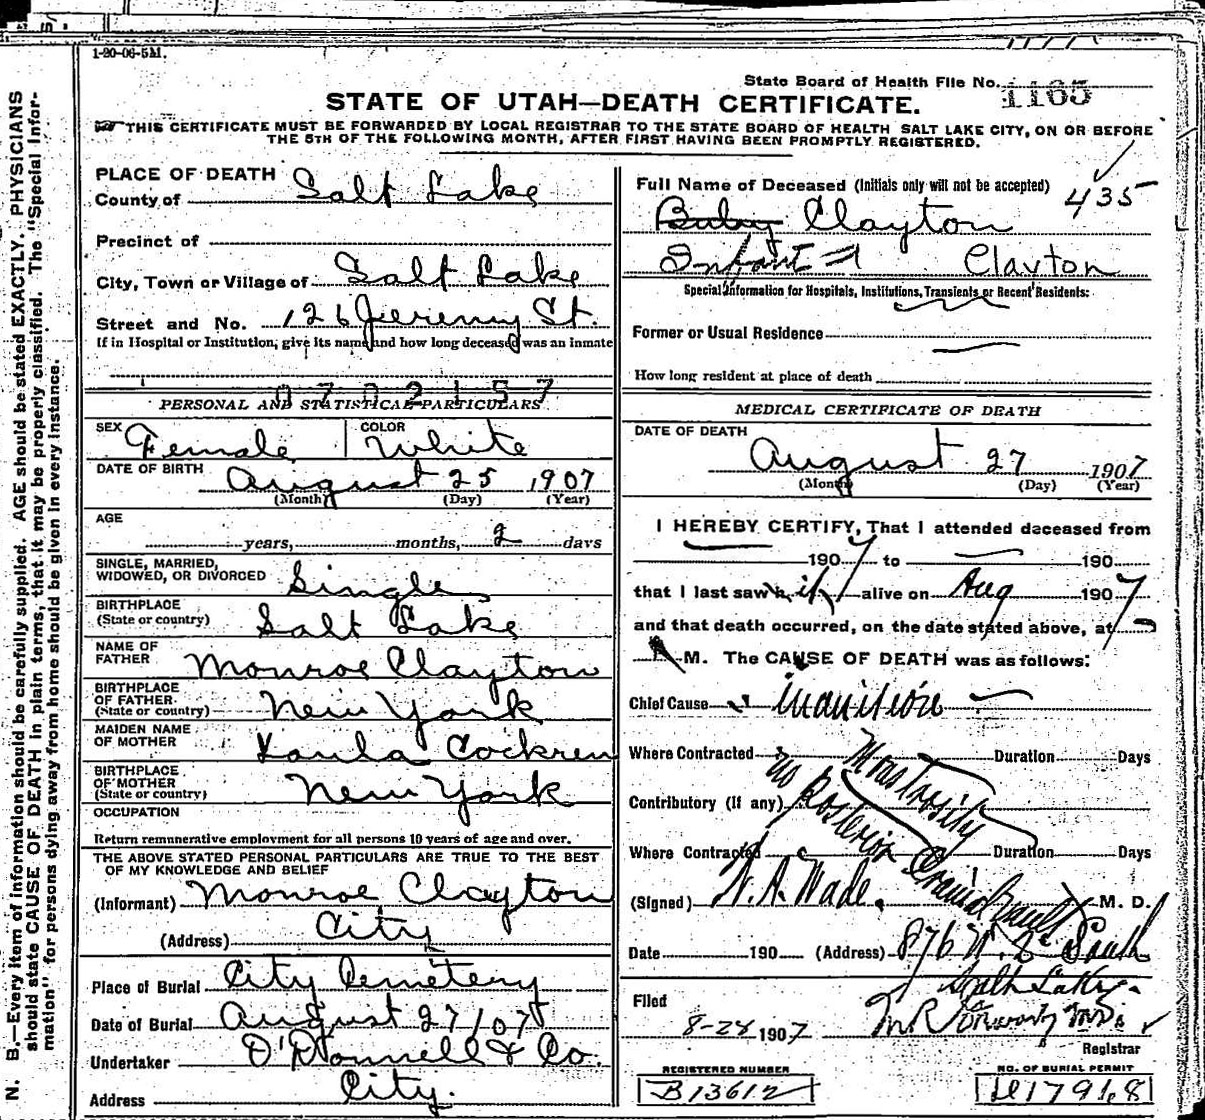 1-20-06-5M.
State Board of Health File No. 1165
STATE OF UTAH—DEATH CERTIFICATE.
THIS CERTIFICATE MUST BE FORWARDED BY LOCAL REGISTRAR TO THE STATE BOARD OF HEALTH SALT LAKE CITY, ON OR BEFORE
THE 5TH OF THE FOLLOWING MONTH, AFTER FIRST HAVING BEEN PROMPTLY REGISTERED.
N. B.—Every item of information should be carefully supplied. AGE should be stated EXACTLY. PHYSICIANS
should state CAUSE OF DEATH in plain terms, that it may be properly classified. The "Special Infor-
mation" for persons dying away from home should be given in every instance.
PLACE OF DEATH
County of Salt Lake
Precinct of
City, Town or Village of Salt Lake
Street and No. 126 Jeremy St.
If in Hospital or Institution, give its name and how long deceased was an inmate
0702157
PERSONAL AND STATISTICAL PARTICULARS
SEX Female COLOR White
DATE OF BIRTH August 25 1907
(Month) (Day) (Year)
AGE years, months, 2 days
SINGLE, MARRIED,
WIDOWED, OR DIVORCED Single
BIRTHPLACE
(State or country) Salt Lake
NAME OF
FATHER Monroe Clayton
BIRTHPLACE
OF FATHER
(State or country) New York
MAIDEN NAME
OF MOTHER Cockren
BIRTHPLACE
OF MOTHER
(State or country) New York
OCCUPATION
Return remunerative employment for all persons 10 years of age and over.
THE ABOVE STATED PERSONAL PARTICULARS ARE TRUE TO THE BEST
OF MY KNOWLEDGE AND BELIEF
(Informant) Monroe Clayton
(Address) City
Place of Burial City Cemetery
Date of Burial August 27/07
Undertaker O'Donnell & Co.
Address City.
Full Name of Deceased (Initials only will not be accepted)
435
Baby Clayton
Infant Clayton
Special Information for Hospitals, Institutions, Transients or Recent Residents:
Former or Usual Residence
How long resident at place of death
MEDICAL CERTIFICATE OF DEATH
DATE OF DEATH
August 27 1907
(Month) (Day) (Year)
I HEREBY CERTIFY, That I attended deceased from
1907 to 190
that I last saw h alive on Aug 1907
and that death occurred, on the date stated above, at
M. The CAUSE OF DEATH was as follows:
Chief Cause inanition
Where Contracted Duration Days
Monstrosity
Contributory (if any) no Posterior
Where Contracted Duration Days
(Signed) W. A. Wade. M. D.
Date 190 (Address) 876 W. 2d South
Salt Lake
Filed
8-28 1907
Registrar
REGISTERED NUMBER
B13612
NO. OF BURIAL PERMIT